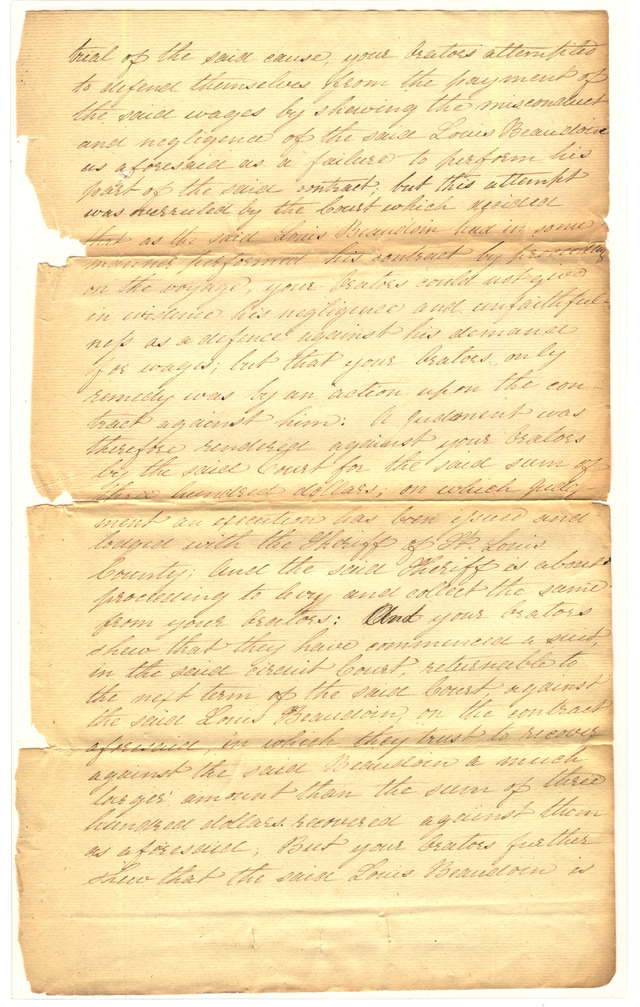 trial of the said cause, your Orators attempted
to defend themselves from the payment of
the said wages by shewing the misconduct
and negligence of the said Louis Beaudoin
as aforesaid as a failure to perform his
part of the said contract; but this attempt
was overruled by the Court which decided
that as the said Louis Beaudoin had in some
manner performed his contract by proceeding
on the voyage, your Orators could not give
in evidence his negligence and unfaithful-
ness as a defence against his demand
for wages; but that your Orators only
remedy was by an action upon the con-
tract against him: A judgment was
therefore rendered against your Orators
by the said Court for the said sum of
three hundred dollars; on which judg-
ment an execution has been issued and
lodged with the Sheriff of St. Louis
County; And the said Sheriff is about
proceeding to levy and collect the same
from your Orators: And your Orators
shew that they have commenced a suit,
in the said circuit Court, returnable to
the next term of the said Court, against
the said Louis Beaudoin, on the contract
aforesaid, in which they trust to recover
against the said Beaudoin a much
larger amount than the sum of three
hundred dollars recovered against them
as aforesaid; But your Orators further
shew that the said Louis Beaudoin is